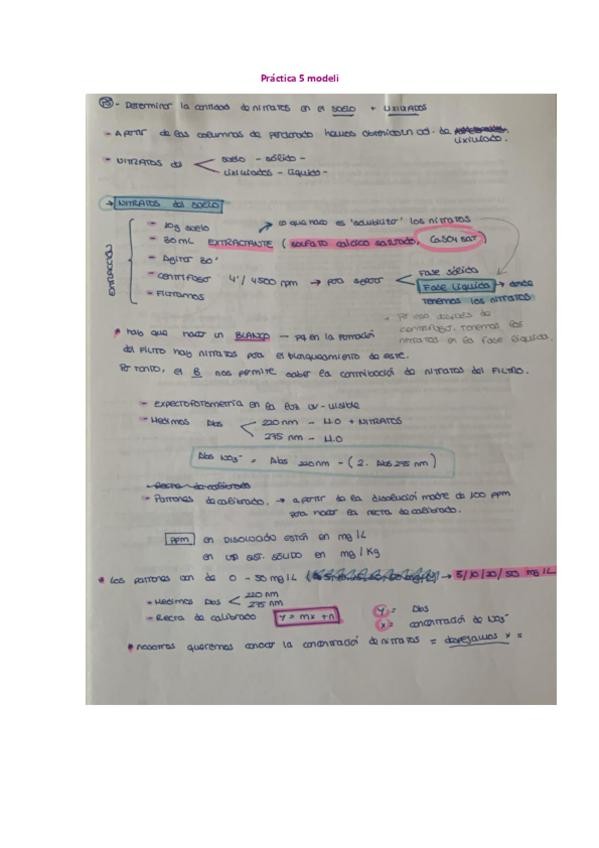 Práctica 5 modeli
P5 - Determinar la cantidad de nitratos en el SUELO + LIXIVIADOS
- A partir de las columnas de percolado hemos obtenido un vol. de
lixiviado.
- NITRATOS del
suelo - sólido -
lixiviados - líquido -
→ NITRATOS del SUELO
EXTRACCIÓN
- 10g suelo
lo que hace es "solubilizar" los nitratos
- 30 mL EXTRACTANTE (sulfato cálcico saturado, CaSO4 sat)
- Agitar 30'
- centrifugar 4'/ 4500 rpm → para separar
Fase sólida
Fase líquida → donde
tenemos los nitratos
- Filtramos
* Por eso después de
centrifugar, tenemos los
nitratos en la fase líquida.
* hay que hacer un BLANCO — pq en la formación
del FILTRO hay nitratos para el blanqueamiento de este.
Por tanto, el B nos permite saber la contribución de nitratos del FILTRO.
- Espectrofotometría en la luz UV-visible
- Medimos Abs
220 nm - M.O + NITRATOS
275 nm - M.O
Abs NO3⁻ = Abs 220nm - (2. Abs 275 nm)
Recta de calibrado
- Patrones de calibrado. → a partir de la disolución madre de 100 ppm
para hacer la recta de calibrado.
ppm en DISOLUCIÓN están en mg/L
en un sist. SÓLIDO en mg/Kg
* Los patrones son de 0 - 50 mg/L → 5/10/20/50 mg/L
- Medimos Abs
220 nm
275 nm
- Recta de calibrado y = mx + n
y = Abs
x = concentración de NO3⁻
* nosotros queremos conocer la concentración de nitratos = despejamos x =